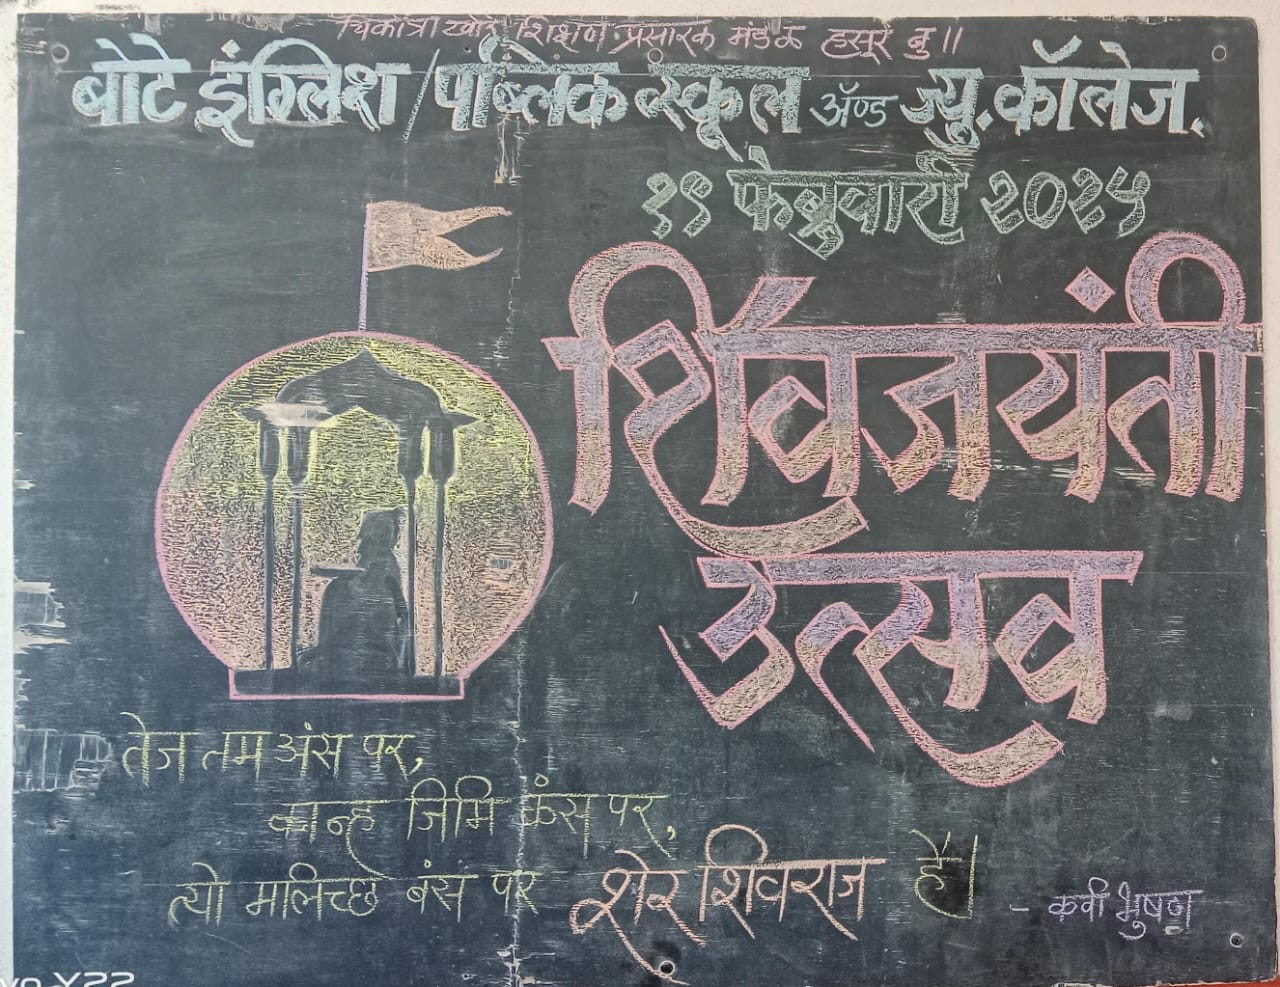 चिकोत्रा खोरे शिक्षण प्रसारक मंडळ हसूर बु॥
बोटे इंग्लिश / पब्लिक स्कूल ॲण्ड ज्यु. कॉलेज.
१९ फेब्रुवारी २०२५
शिवजयंती
उत्सव
तेज तम अंस पर,
कान्ह जिमि कंस पर,
त्यो मलिच्छ बंस पर शेर शिवराज है।
- कवी भुषण
vo Y22